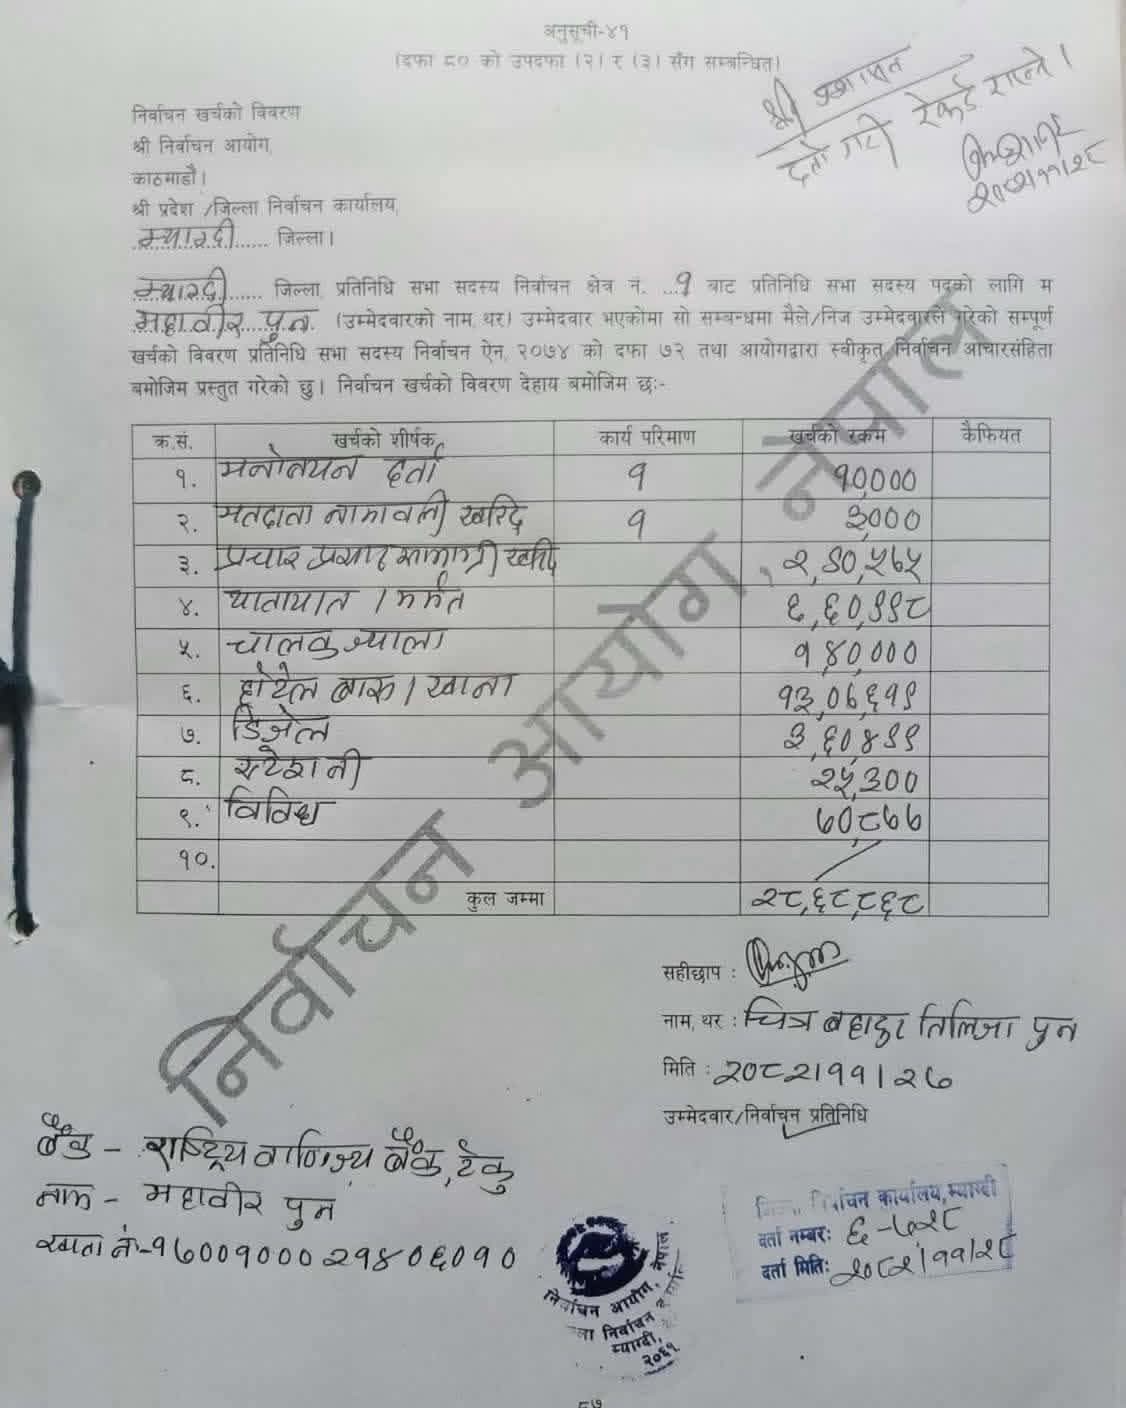 अनुसूची-४१
(दफा ८० को उपदफा (२) र (३) सँग सम्बन्धित)
दर्ता गरी रेकर्ड राख्ने।
२०८२/११/२८
निर्वाचन खर्चको विवरण
श्री निर्वाचन आयोग,
काठमाडौं।
श्री प्रदेश /जिल्ला निर्वाचन कार्यालय,
म्याग्दी जिल्ला।
म्याग्दी जिल्ला, प्रतिनिधि सभा सदस्य निर्वाचन क्षेत्र नं. १ बाट प्रतिनिधि सभा सदस्य पदको लागि म
महावीर पुन (उम्मेदवारको नाम, थर) उम्मेदवार भएकोमा सो सम्बन्धमा मैले/निज उम्मेदवारले गरेको सम्पूर्ण
खर्चको विवरण प्रतिनिधि सभा सदस्य निर्वाचन ऐन, २०७४ को दफा ७२ तथा आयोगद्वारा स्वीकृत निर्वाचन आचारसंहिता
बमोजिम प्रस्तुत गरेको छु। निर्वाचन खर्चको विवरण देहाय बमोजिम छः-
क्र.सं. खर्चको शीर्षक कार्य परिमाण खर्चको रकम कैफियत
१. मनोनयन दर्ता १ १०,०००
२. मतदाता नामावली खरिद १ ३,०००
३. प्रचार प्रसार सामाग्री खरीद २,९०,५७५
४. यातायात / मर्मत ६,६०,९९८
५. चालक ज्याला १,४०,०००
६. होटेल बास / खाना १३,०७,६१९
७. डिजेल ३,६०,४९९
८. स्टेशनी २५,३००
९. विविध ७०,८७७
१०.
कुल जम्मा २८,६८,८६८
निर्वाचन आयोग, नेपाल
सहीछाप :
नाम, थर : चित्र बहादुर तिलिजा पुन
मिति : २०८२/११/२७
उम्मेदवार/निर्वाचन प्रतिनिधि
बैंक - राष्ट्रिय वाणिज्य बैंक, टेकु
नाम - महावीर पुन
खाता नं-१७००१०००२१४०६०१०
जिल्ला निर्वाचन कार्यालय, म्याग्दी
दर्ता नम्बर: ६-७२८
दर्ता मिति: २०८२/११/२८
निर्वाचन आयोग, नेपाल
जिल्ला निर्वाचन
म्याग्दी,
८७